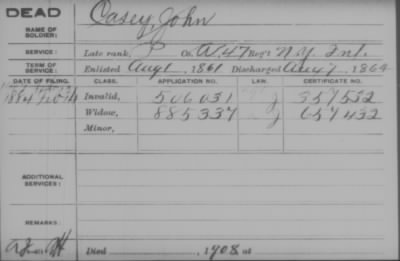 DEAD
NAME OF SOLDIER: Casey, John
SERVICE: Late rank, P Co. A, 47 Reg't N.Y. Inf.
TERM OF SERVICE: Enlisted Aug 1, 1861 Discharged Aug 7, 1864
DATE OF FILING. CLASS. APPLICATION NO. LAW. CERTIFICATE NO.
1884 Invalid, 506031 357532
Widow, 885337 657432
Minor,
ADDITIONAL SERVICES:
REMARKS:
Died 1908, at